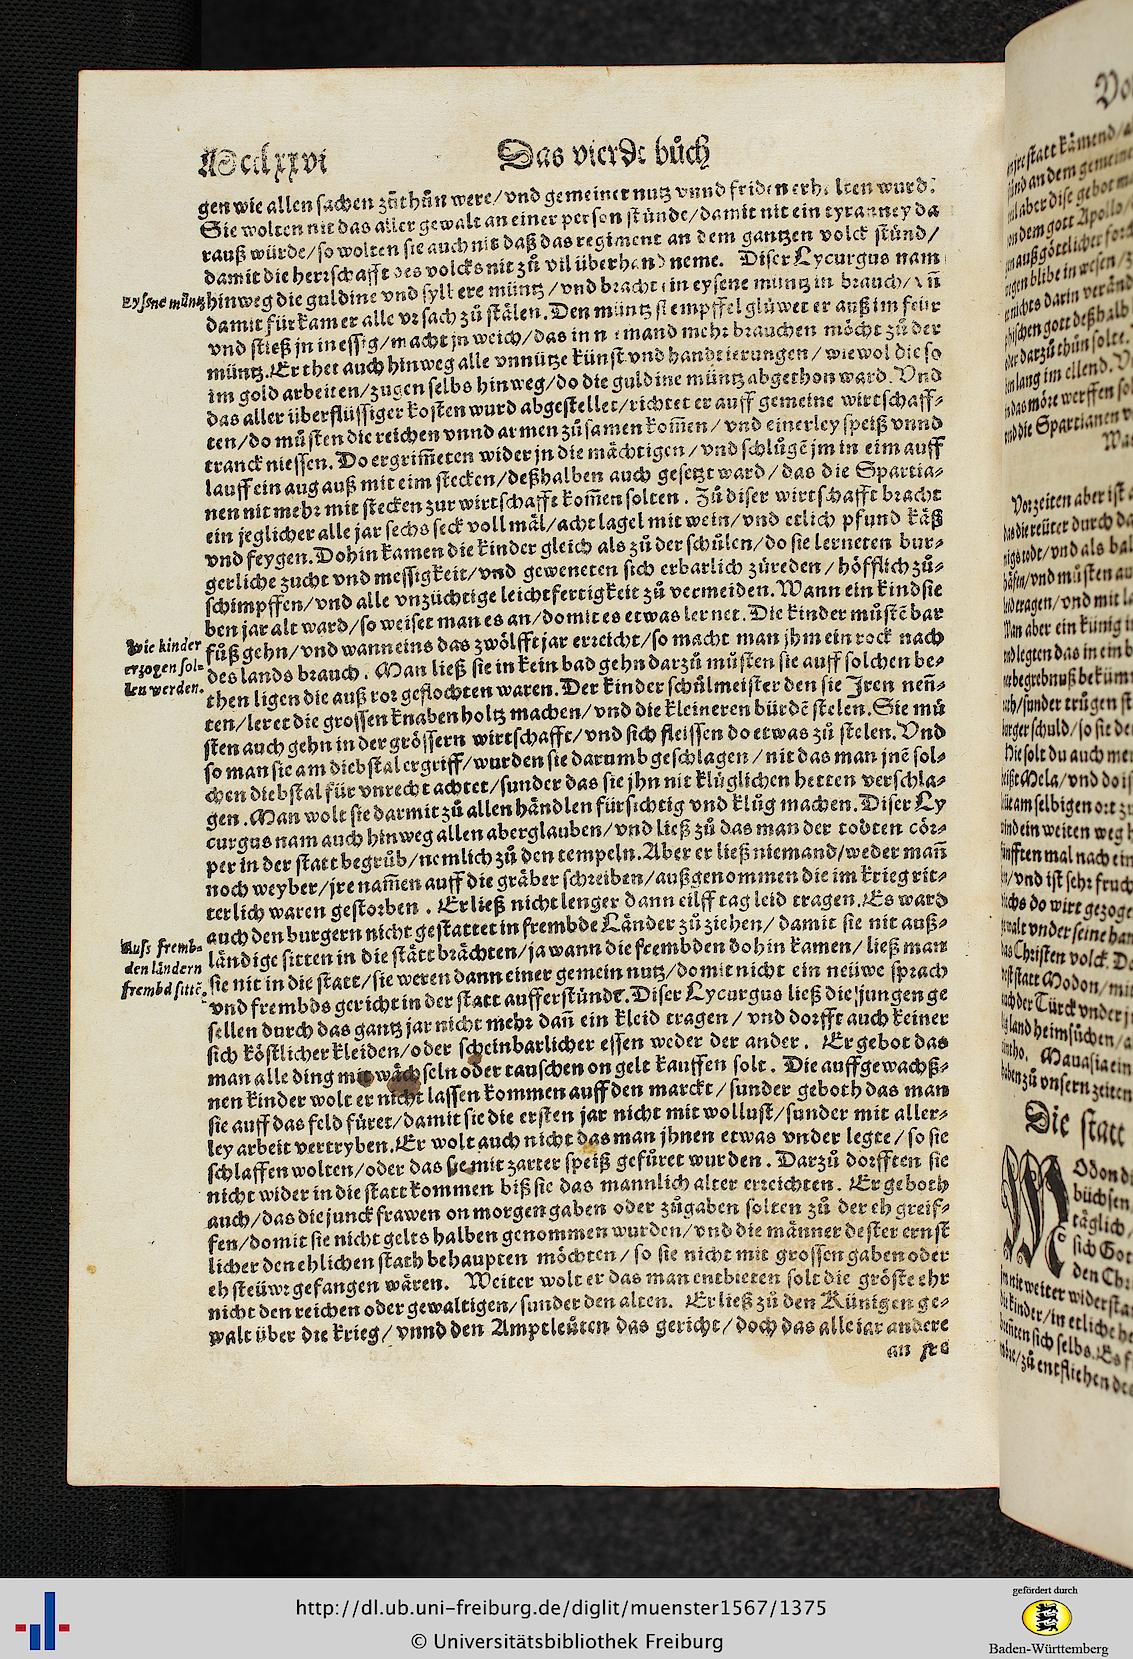 Mcclxxvi
Das vierdt bůch
gen wie allen sachen zůthůn were/vnd gemeiner nutz vnnd friden erhalten wurd.
Sie wolten nit das aller gewalt an einer person stünde/damit nit ein tyranney da
rauß würde/so wolten sie auch nit daß das regiment an dem gantzen volck stünd/
damit die herrschafft des volcks nit zů vil überhand neme. Diser Lycurgus nam
Eysene müntz
hinweg die guldine vnd sylbere müntz/vnd bracht ein eysene müntz in brauch/vñ
damit fürkam er alle vrsach zů stälen. Den müntz stempffel glüwet er auß im feür
vnd stieß jn in essig/macht jn weich/das in niemand mehr brauchen möcht zů der
müntz. Er thet auch hinweg alle vnnütze künst vnd handtierungen/wiewol die so
im gold arbeiten/zugen selbs hinweg/do die guldine müntz abgethon ward. Vnd
das aller überflüssiger kosten wurd abgestellet/richtet er auff gemeine wirtschaff-
ten/do můsten die reichen vnnd armen zůsamen kom̃en/vnd einerley speiß vnnd
tranck niessen. Do ergrim̃eten wider jn die mächtigen/vnd schlůgẽ jm in eim auff
lauff ein aug auß mit eim stecken/deßhalben auch gesetzt ward/das die Spartia-
nen nit mehr mit stecken zur wirtschafft kom̃en solten. Zů diser wirtschafft bracht
ein jeglicher alle jar sechs seck voll mäl/acht lagel mit wein/vnd etlich pfund käß
vnd feygen. Dohin kamen die kinder gleich als zů der schůlen/do sie lerneten bur-
gerliche zucht vnd messigkeit/vnd geweneten sich erbarlich zůreden/höfflich zů-
schimpffen/vnd alle vnzüchtige leichtfertigkeit zů vermeiden. Wann ein kind sie
ben jar alt ward/so weiset man es an/domit es etwas lernet. Die kinder můstẽ bar
Wie kinder
erzogen sol-
len werden.
fůß gehn/vnd wann eins das zwölfft jar erreicht/so macht man jhm ein rock nach
des lands brauch. Man ließ sie in kein bad gehn darzů můsten sie auff solchen be-
then ligen die auß ror geflochten waren. Der kinder schůlmeister den sie Iren neñ-
ten/leret die grossen knaben holtz machen/vnd die kleineren bürdẽ stelen. Sie mů
sten auch gehn in der grössern wirtschafft/vnd sich fleissen do etwas zů stelen. Vnd
so man sie am diebstal ergriff/wurden sie darumb geschlagen/nit das man jnẽ sol-
chen diebstal für vnrecht achtet/sunder das sie jhn nit klůglichen hetten verschla-
gen. Man wolt sie darmit zů allen händlen fürsichtig vnd klůg machen. Diser Ly
curgus nam auch hinweg allen aberglauben/vnd ließ zů das man der todten cör-
per in der statt begrůb/nemlich zů den tempeln. Aber er ließ niemand/weder mañ
noch weyber/jre nam̃en auff die gräber schreiben/außgenommen die im krieg rit-
terlich waren gestorben. Er ließ nicht lenger dann eilff tag leid tragen. Es ward
auch den burgern nicht gestattet in frembde Länder zů ziehen/damit sie nit auß-
Auss fremb-
den ländern
frembd sittẽ.
ländige sitten in die stätt brächten/ja wann die frembden dohin kamen/ließ man
sie nit in die statt/sie weren dann einer gemein nutz/domit nicht ein neüwe sprach
vnd frembds gericht in der statt aufferstünde. Diser Lycurgus ließ die jungen ge
sellen durch das gantz jar nicht mehr dañ ein kleid tragen/vnd dorfft auch keiner
sich köstlicher kleiden/oder scheinbarlicher essen weder der ander. Er gebot das
man alle ding mit wächseln oder tauschen on gelt kauffen solt. Die auffgewachß-
nen kinder wolt er nicht lassen kommen auff den marckt/sunder geboth das man
sie auff das feld füret/damit sie die ersten jar nicht mit wollust/sunder mit aller-
ley arbeit vertryben. Er wolt auch nicht das man jhnen etwas vnder legte/so sie
schlaffen wolten/oder das sie mit zarter speiß gefüret wurden. Darzů dorfften sie
nicht wider in die statt kommen biß sie das mannlich alter erreichten. Er geboth
auch/das die junckfrawen on morgengaben oder zůgaben solten zů der eh greif-
fen/domit sie nicht gelts halben genommen wurden/vnd die männer dester ernst
licher den ehlichen stath behaupten möchten/so sie nicht mit grossen gaben oder
ehsteüwr gefangen wären. Weiter wolt er das man entbieten solt die gröste ehr
nicht den reichen oder gewaltigen/sunder den alten. Er ließ zů den Künigen ge-
walt über die krieg/vnnd den Amptleüten das gericht/doch das alle jar andere
an jre
Die statt
http://dl.ub.uni-freiburg.de/diglit/muenster1567/1375
© Universitätsbibliothek Freiburg
gefördert durch
Baden-Württemberg